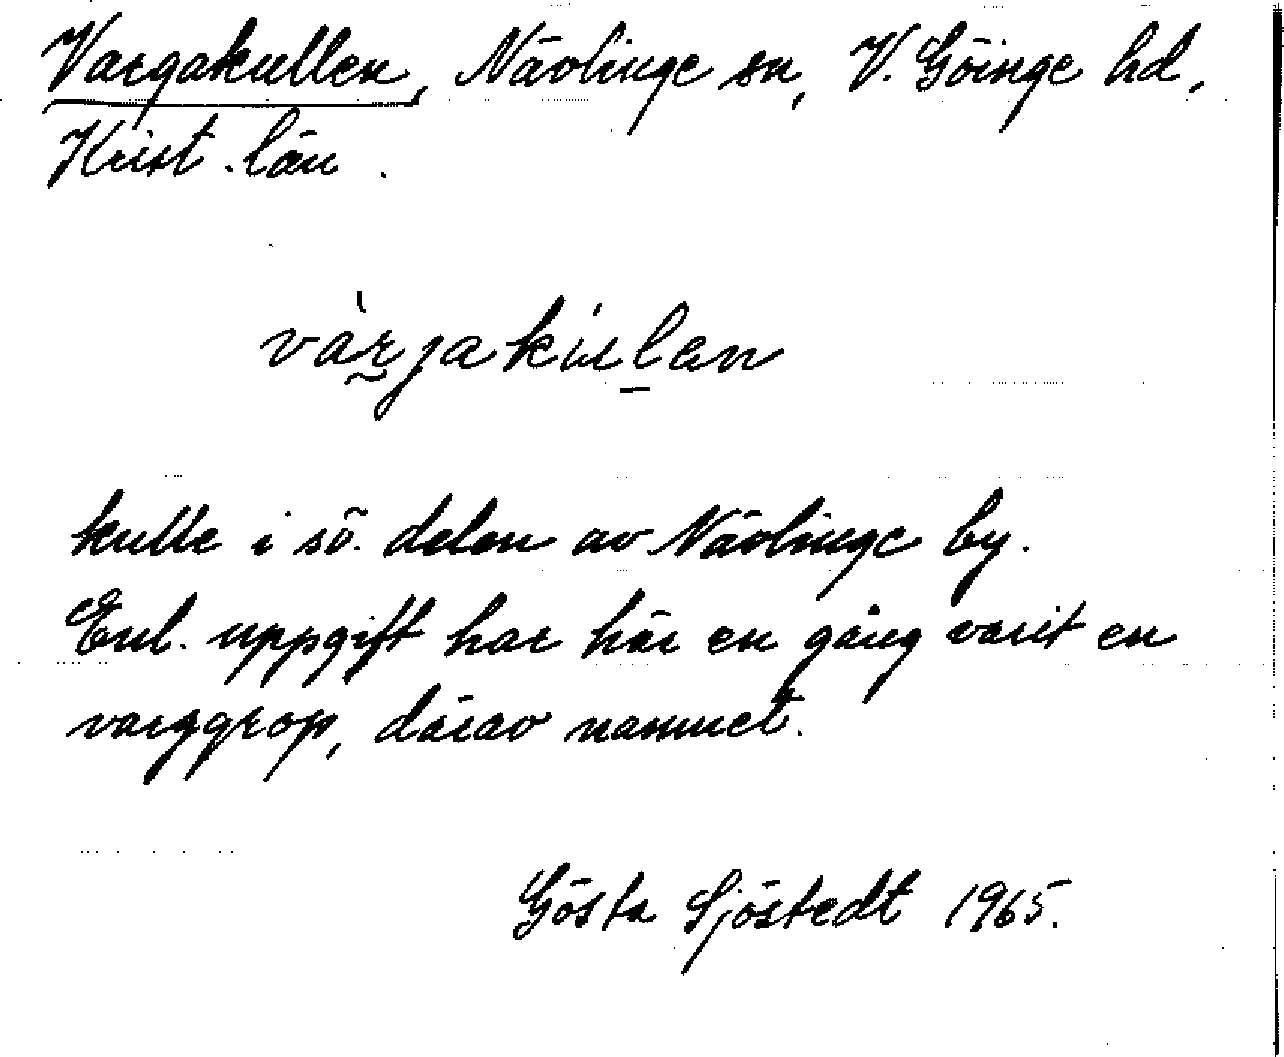 Vargakullen, Nävlinge sn, V. Göinge hd,
Krist. län.
và̰rjakúl̠en
kulle i sö. delen av Nävlinge by.
Enl. uppgift har här en gång varit en
varggrop, därav namnet.
Gösta Sjöstedt 1965.